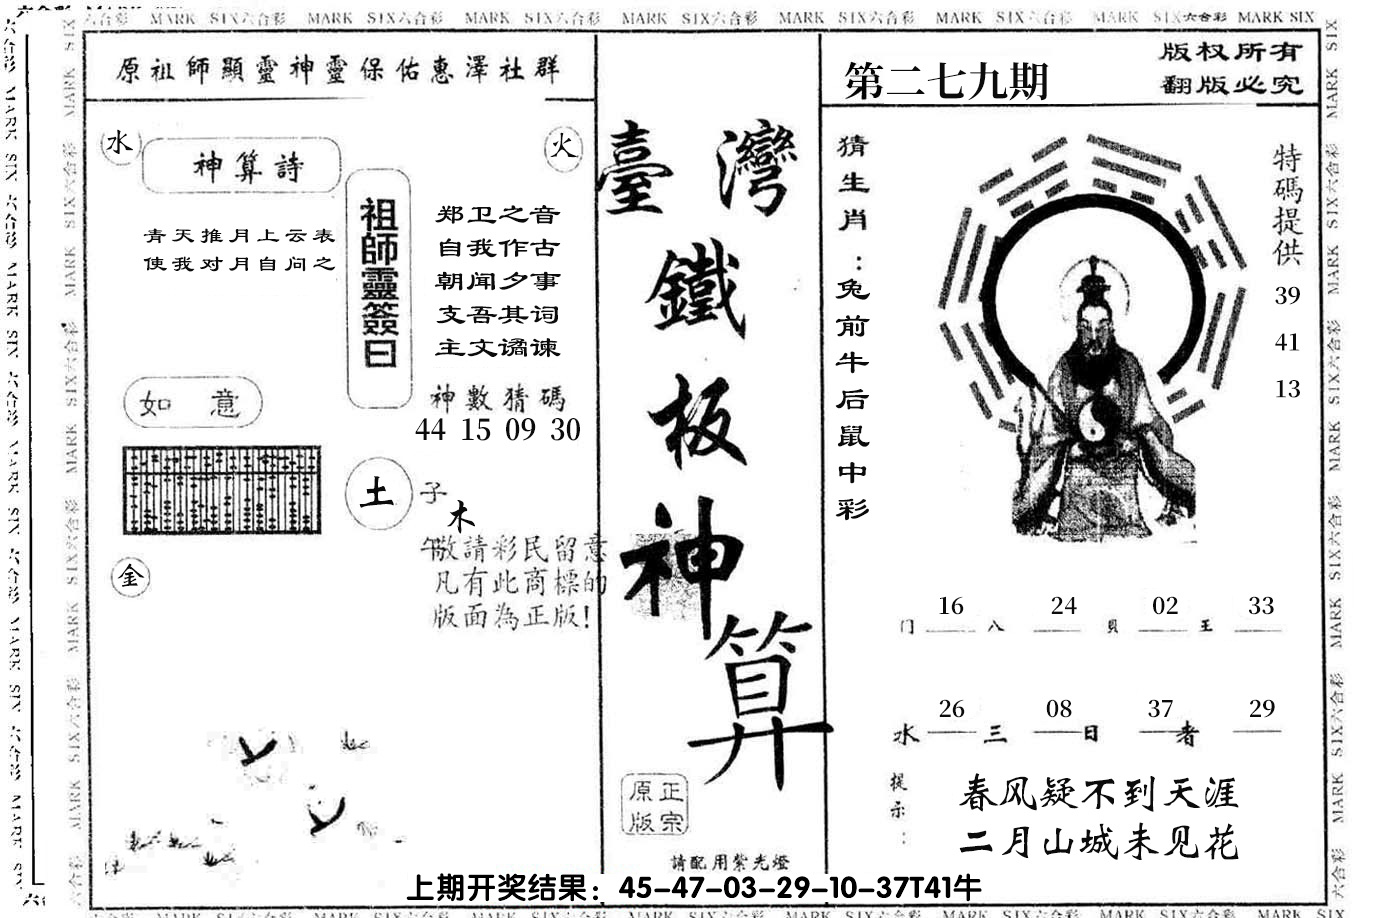 六合彩 MARK SIX六合彩 MARK SIX六合彩 MARK SIX六合彩 MARK SIX六合彩 MARK SIX六合彩 MARK SIX六合彩 MARK SIX六合彩 MARK SIX
原祖師顯靈神靈保佑惠澤社群
水
神算詩
火
青天推月上云表
使我对月自问之
祖師靈簽曰
郑卫之音
自我作古
朝闻夕事
支吾其词
主文谲谏
神數猜碼
44 15 09 30
如意
土
子
木
午
金
敬請彩民留意
凡有此商標的
版面為正版!
臺灣
鐵
板
神
算
正宗
原版
請配用紫光燈
第二七九期
版权所有
翻版必究
猜生肖:兔前牛后鼠中彩
特碼提供
39
41
13
16 24 02 33
门 八 貝 王
26 08 37 29
水 三 日 者
提示:
春风疑不到天涯
二月山城未见花
上期开奖结果：45-47-03-29-10-37T41牛